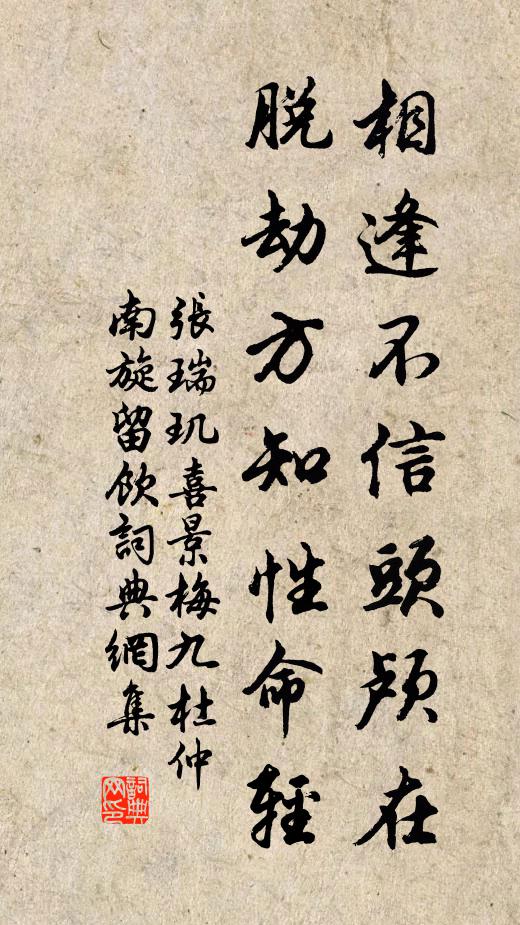 相逢不信頭顱在
脫劫方知性命輕
張瑞玑喜景梅九杜仲
南旋留飲詞典網集
詞典網印